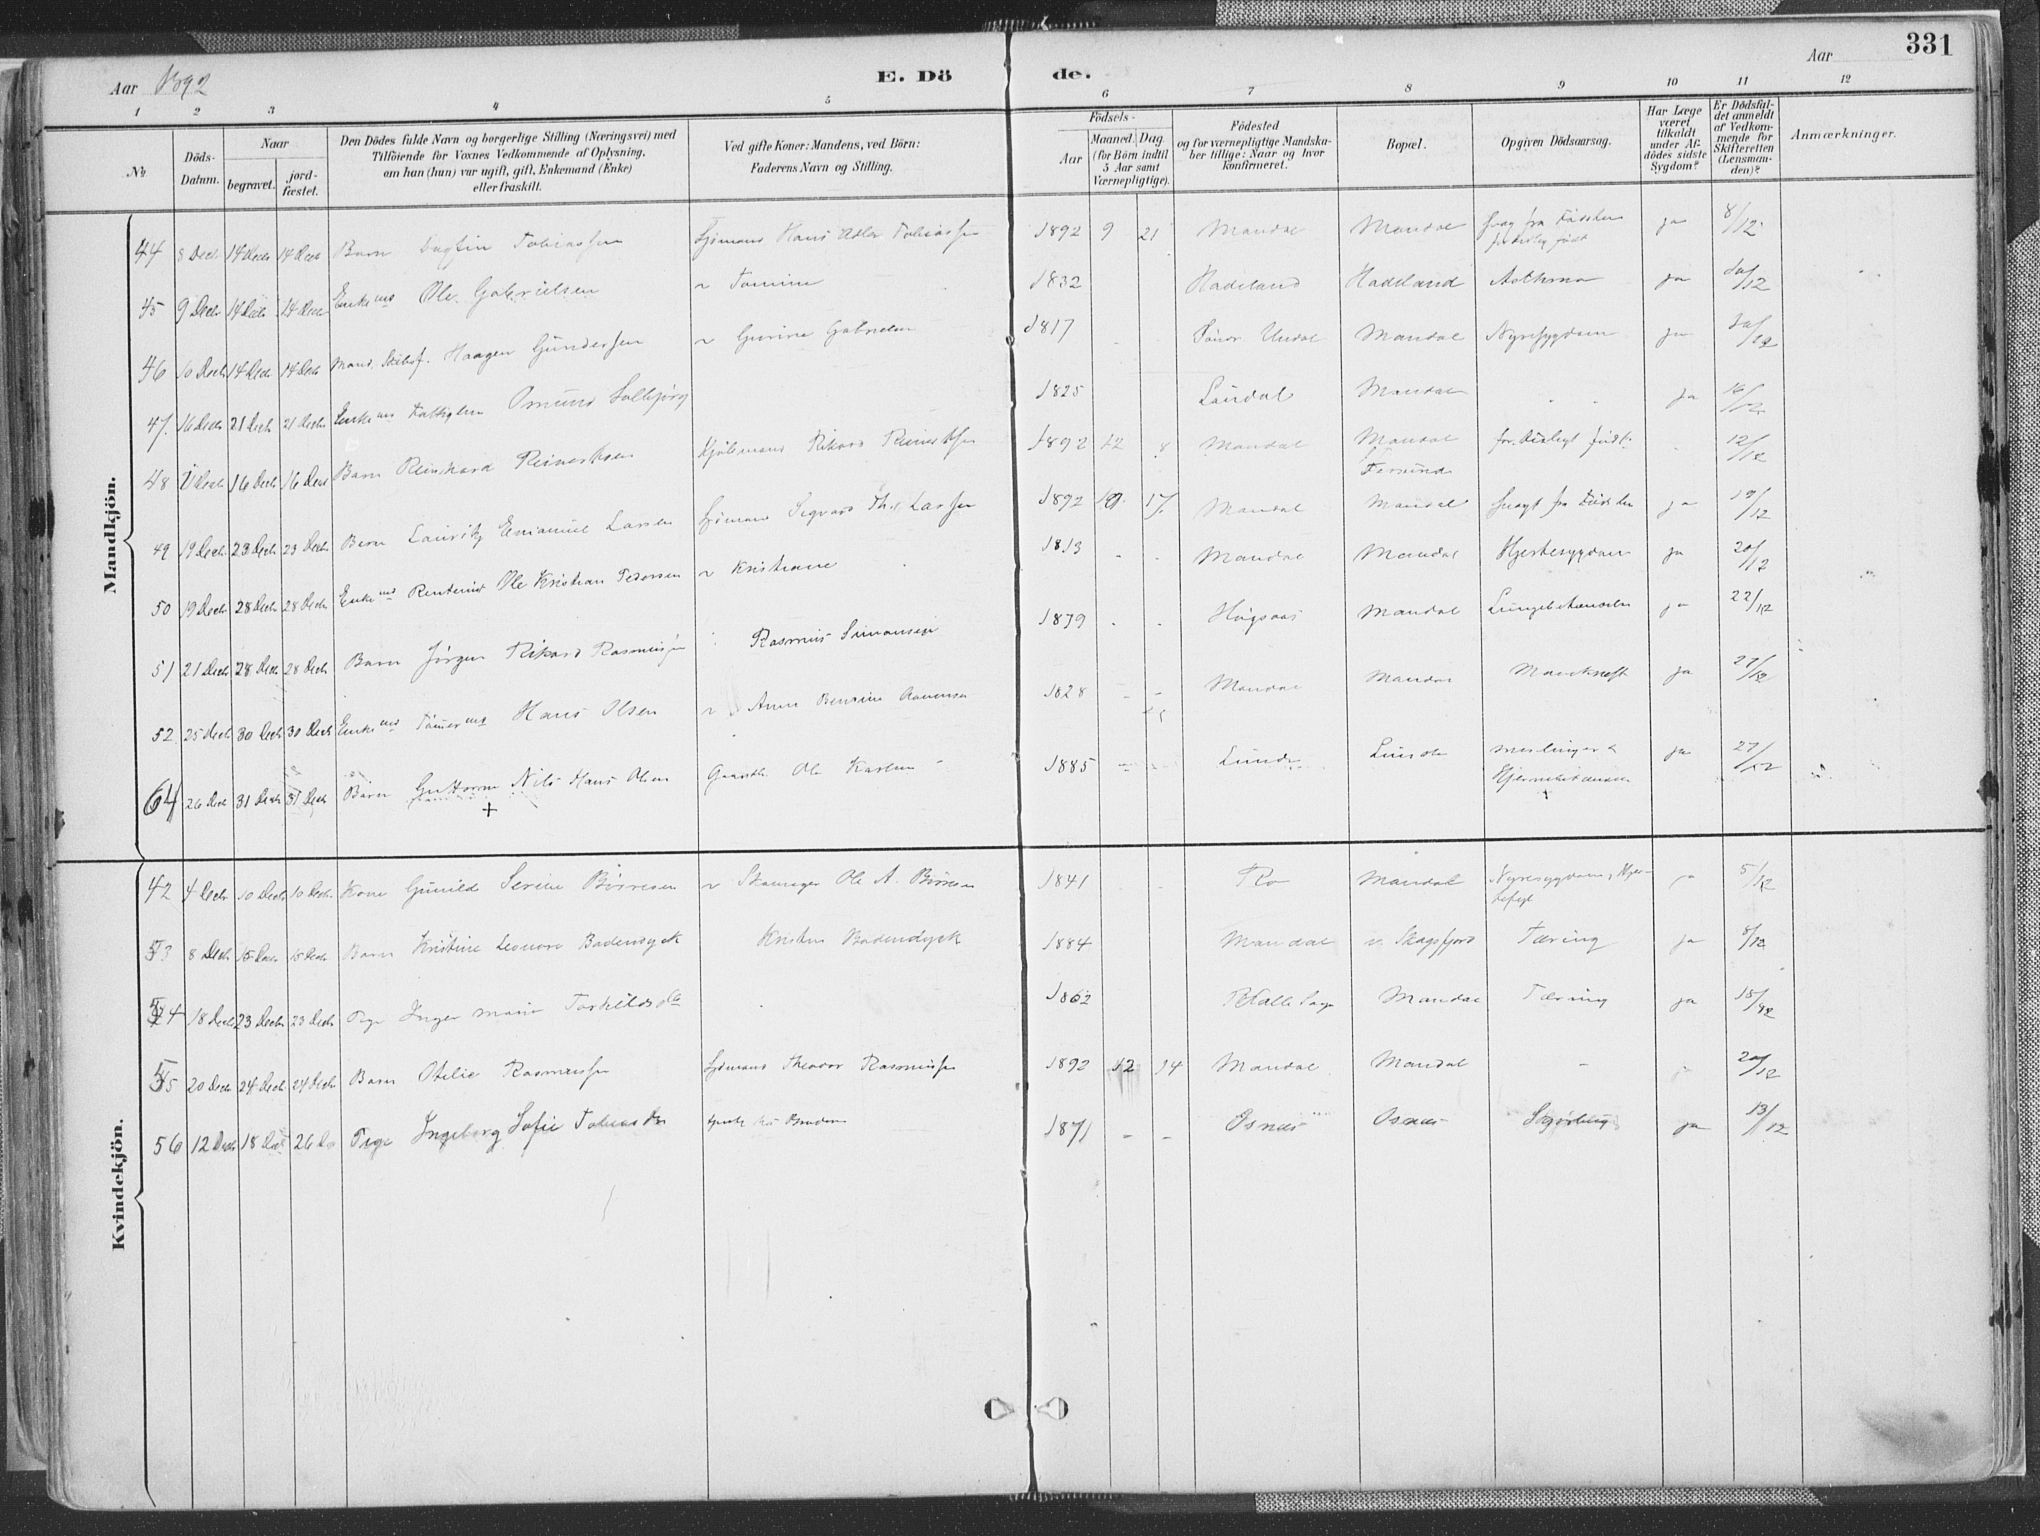 331
Aar 1892
E. Dö de.
Aar
1 2 3 4 5 6 7 8 9 10 11 12
No
Döds-Datum.
Naar
begravet.
jord-fæstet.
Den Dödes fulde Navn og borgerlige Stilling (Næringsvei) med
Tilföiende for Voxnes Vedkommende af Oplysning,
om han (hun) var ugift, gift, Enkemand (Enke)
eller fraskilt.
Ved gifte Koner: Mandens, ved Börn:
Faderens Navn og Stilling.
Födsels-
Aar
Maaned. Dag.
(for Börn indtil
5 Aar samt
Værnepligtige).
Födested
og for værnepligtige Mandska-
ber tillige: Naar og hvor
konfirmeret.
Bopæl.
Opgiven Dödsaarsag.
Har Læge
været
tilkaldt
under Af-
dödes sidste
Sygdom?
Er Dödsfal-
det anmeldt
af Vedkom-
mende for
Skifteretten
(Lensman-
den)?
Anmærkninger.
Mandkjön.
44 8 Decb 14 Decb 14 Decb Barn Tobiassen Sjømand Hans Adler Tobiassen 1892 9 21 Mandal Mandal Svag fra Fødselen ja 8/12
45 9 Decb 14 Decb 14 Decb Enkemd Ole Gabrielsen 1832 Hadeland Hadeland Asthma ja 10/12
46 10 Decb 14 Decb 14 Decb Haagen Gundersen Gurine Gabrielsen 1817 Søndr Undal Mandal Nyresygdom ja 10/12
47. 16 Decb 21 Decb 21 Decb Enkemd Omund 1825 Laudal Mandal ja 16/12
48 16 Decb 16 Decb Barn Reinhard Reinertsen Rikard Reinertsen 1892 12 8 Mandal Mandal Farsund født 12/12
49 19 Decb 23 Decb 23 Decb Barn Lauritz Emanuel Larsen Sjømand Sigvard Th. Larsen 1892 17 Mandal Mandal Svagt fra Fødselen ja 19/12
50 19 Decb 28 Decb 28 Decb Enkemd Rentenist Ole Kristian Pedersen Kristiane 1813 Mandal Mandal Hjertesygdom ja 20/12
51 21 Decb 28 Decb 28 Decb Barn Jørgen Rikard Rasmussen Rasmus Simonsen 1879 Høgsaas Mandal Lungebetændelse ja 22/12
52 25 Decb 30 Decb 30 Decb Enkemd Tømermd Hans Olsen 1828 Mandal Mandal Mavekræft ja 27/12
64 26 Decb 31 Decb 31 Decb Barn Guttorm Nils Hans Olsen Gaardbr. Ole 1885 Lunde Lunde Meslinger & Hjernebetændelse ja 27/12
+
Kvindekjön.
42 4 Decb 10 Decb 10 Decb Kone Gunild Serine Børresen Ole A. Børresen 1841 Ro Mandal Nyresygdom, ja 5/12
53 8 Decb 15 Decb 15 Decb Barn Kristine Leonore Badendyck Kristen Badendyck 1884 Mandal v. Skogsfjord Tæring ja 8/12
54 18 Decb 23 Decb 23 Decb Pige Inger Marie Torkildsdtr 1862 Mandal Tæring ja
55 20 Decb 24 Decb 24 Decb Barn Otelie Rasmussen Sjømand Theodor Rasmussen 1892 12 14 Mandal Mandal ja 20/12
56 12 Decb 18 Dec 26 De Pige Ingeborg Sofie Tobiasdtr 1871 Osnæs Osnæs ja 13/12